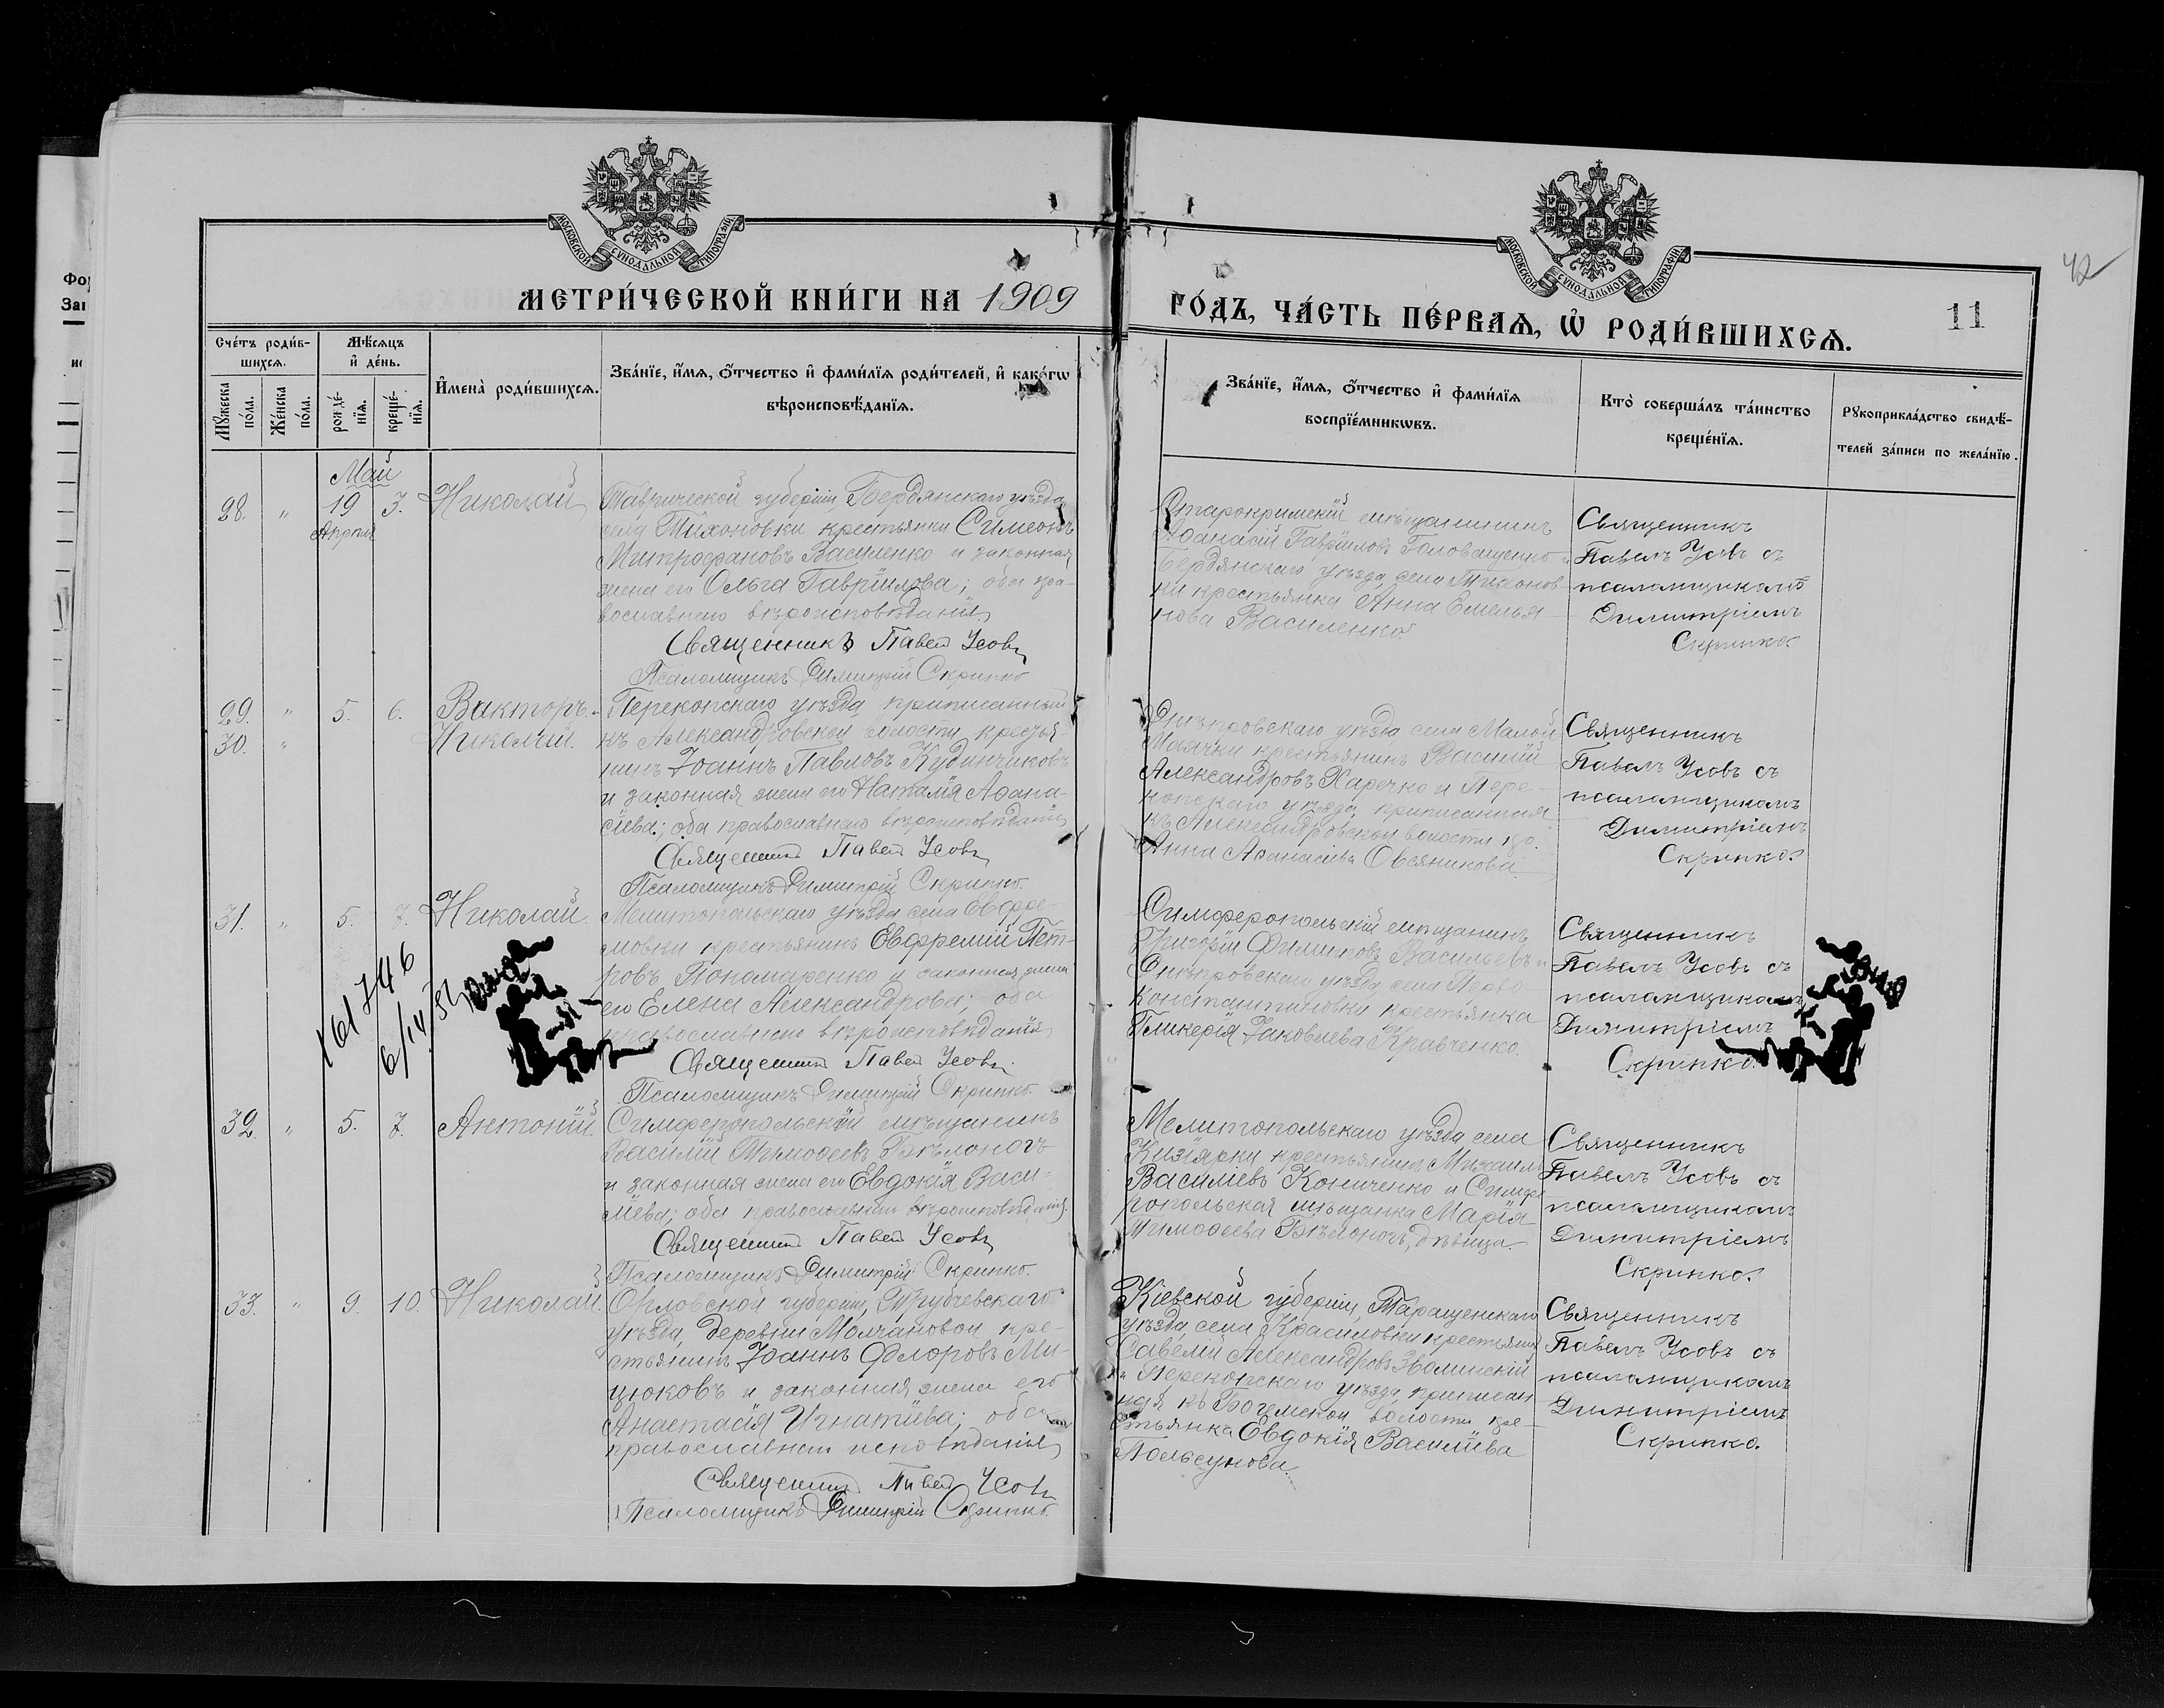 МОСКОВСКОЙ СѴНОДАЛЬНОЙ ТИПОГРАФІИ
МОСКОВСКОЙ СѴНОДАЛЬНОЙ ТИПОГРАФІИ
42
МЕТРИ́ЧЕСКОЙ КНИ́ГИ НА 1909
ГО́ДЪ, ЧА́СТЬ ПЕ́РВАѦ, Ѡ҆ РОДИ́ВШИХСѦ.
11
Сче́тъ роди́в-
шихсѧ.
Мꙋ́жеска по́ла.
Же́нска по́ла.
Мѣ́сѧцъ
и҆ де́нь.
рожде́-
нїѧ.
креще́-
нїѧ.
И҆мена̀ роди́вшихсѧ.
Зва́нїе, и҆́мѧ, ѻ҆́тчество и҆ фами́лїѧ роди́телей, и҆ како́гѡ
вѣроисповѣ́данїѧ.
Зва́нїе, и҆́мѧ, ѻ҆́тчество и҆ фами́лїѧ
воспрїе́мникѡвъ.
Кто̀ соверша́лъ та́инство
креще́нїѧ.
Рꙋкоприкла́дство свидѣ́-
телей за́писи по жела́нїю.
Май
28. „ 19 3. Николай
Апрѣля
Таврической губерніи, Бердянскаго уѣзда,
села Тихоновки крестьянин Симеонъ
Митрофановъ Василенко и законная
жена его Ольга Гавріилова; оба пра-
вославнаго вѣроисповѣданія
Священникъ Павелъ Усовъ
Псаломщикъ Димитрій Скрипко
Старокримскій мѣщанинъ
Аѳанасій Гавріиловъ Головащенко и
Бердянскаго уѣзда, села Тихонов
ки крестьянка Анна Емелья-
нова Василенко.
Священникъ
Павелъ Усовъ съ
псаломщикомъ
Димитріемъ
Скрипко.
29. „ 5. 6. Викторъ.
30. „ Николай.
Перекопскаго уѣзда, приписанный
къ Александровской волости, крестья-
нинъ Іоаннъ Павловъ Кудинчиковъ
и законная жена его Наталія Аѳана-
сіева; оба православнаго вѣроисповѣданія
Священникъ Павелъ Усовъ
Псаломщикъ Димитрій Скрипко.
Днѣпровскаго уѣзда села Малой
Маячки крестьянинъ Василій
Александровъ Харечко и Пере-
копскаго уѣзда, приписанная
къ Александровской волости кр.
Анна Аѳанасіева Овсяникова.
Священникъ
Павелъ Усовъ съ
псаломщикомъ
Димитріемъ
Скрипко.
31. „ 5. 7. Николай.
Мелитопольскаго уѣзда села Евфре-
мовки крестьянинъ Евфремій Пет-
ровъ Пономаренко и законная жена
его Елена Александрова; оба
православнаго вѣроисповѣданія
Священникъ Павелъ Усовъ.
Псаломщикъ Димитрій Скрипко.
Симферопольскій мѣщанинъ
Григорій Филиповъ Васильевъ и
Днѣпровскаго уѣзда, села Перво-
константиновки крестьянка
Гликерія Іаковлева Кравченко.
Священникъ
Павелъ Усовъ съ
псаломщикомъ
Димитріемъ
Скрипко.
32. „ 5. 7. Антоній.
Симферопольскій мѣщанинъ
Василій Тимоѳеевъ Бѣлоногъ
и законная жена его Евдокія Васи-
ліева; оба православнаго вѣроисповѣданія.
Священникъ Павелъ Усовъ
Псаломщикъ Димитрій Скрипко.
Мелитопольскаго уѣзда села
Кизіярки крестьянинъ Михаилъ
Василіевъ Кониченко и Симфе
ропольская мѣщанка Марія
Тимоѳеева Бѣлоногъ, дѣвица.
Священникъ
Павелъ Усовъ съ
псаломщикомъ
Димитріемъ
Скрипко.
33. „ 9. 10. Николай.
Орловской губерніи, Трубчевскаго
уѣзда, деревни Молчановой кре-
стьянинъ Іоаннъ Флоровъ Ми-
цюковъ и законная жена его
Анастасія Игнатіева; оба
православнаго исповѣданія
Священникъ Павелъ Усовъ
Псаломщикъ Димитрій Скрипко.
Кіевской губерніи, Таращенскаго
уѣзда, села Красиловки крестьянинъ
Савелій Александровъ Зволинскій
и Перекопскаго уѣзда, приписан
ная къ Богемской волости кре-
стьянка Евдокія Василіева
Священникъ
Павелъ Усовъ съ
псаломщикомъ
Димитріемъ
Скрипко.